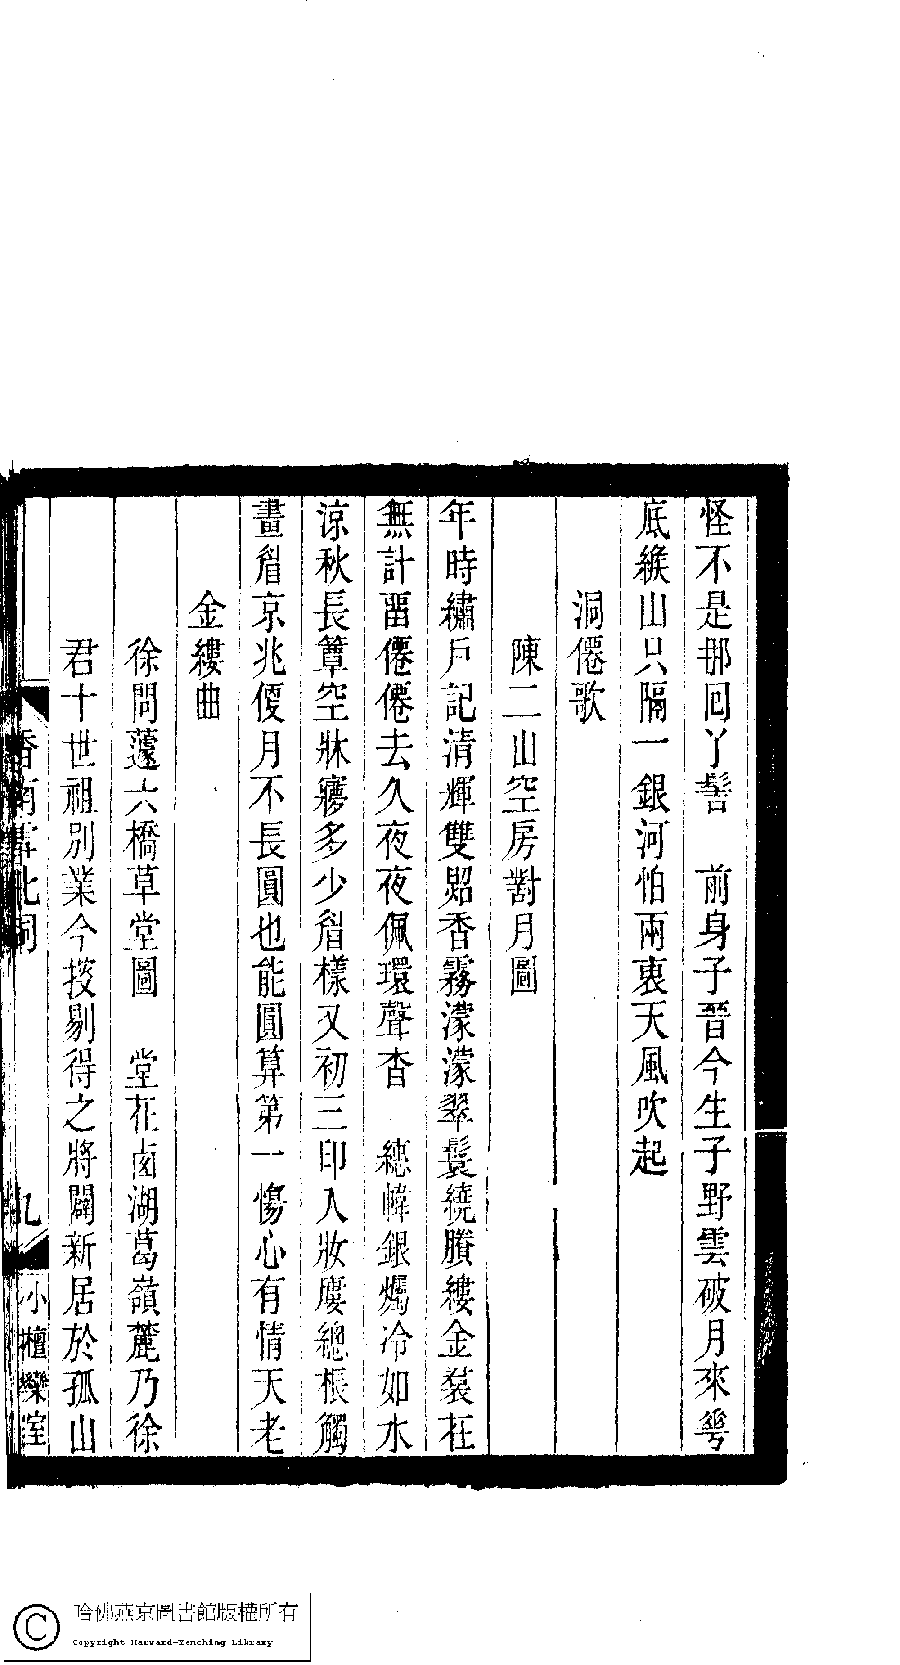 怪不是那回丫髻　前身子晉今生子野雲破月來雩
底緱山只隔一銀河怕兩裏天風吹起
洞僊歌
陳二山空房對月圖
年時繡戶記清輝雙照香霧濛濛翠鬟繞賸縷金裝在
無計畱僊僊去久夜夜佩環聲杳　繐幃銀燭冷如水
涼秋長簟空牀寢多少眉樣又初三印入妝慶總棖觸
畫眉京兆偃月不長圓也能圓算第一傷心有情天老
金縷曲
徐問蘧六橋草堂圖　堂在西湖葛嶺麓乃徐
君十世祖別業今披剔得之將闢新居於孤山
香南雪北詞
九
小檀欒室
哈佛燕京圖書館版權所有
Copyright Harvard-Yenching Library